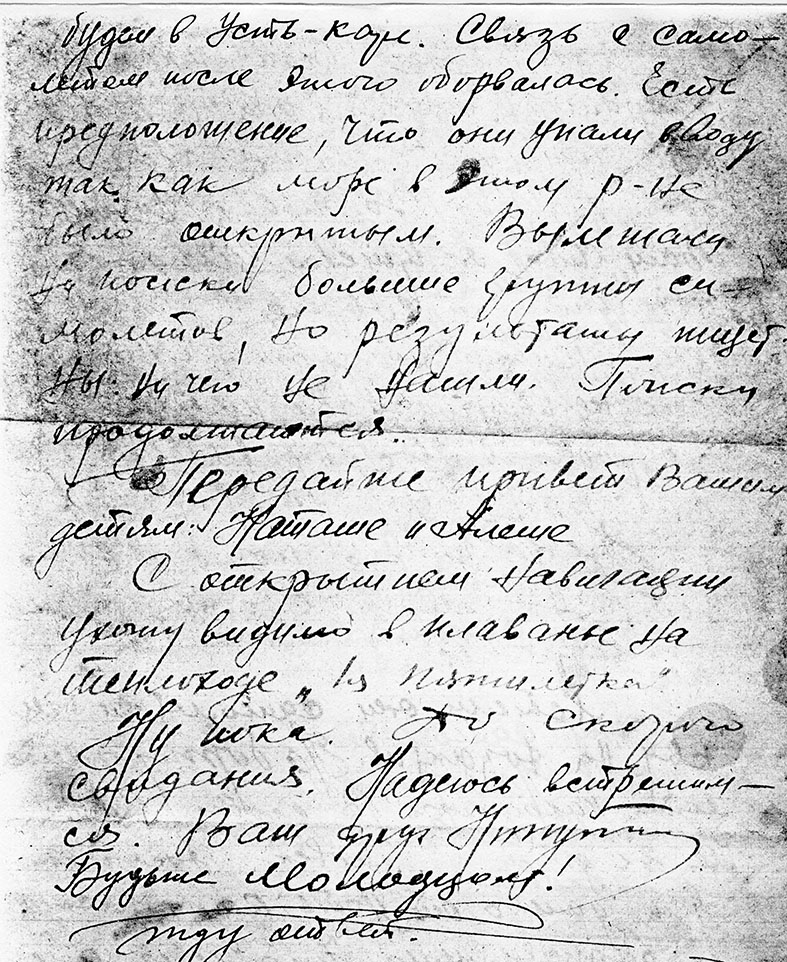 будем в Усть-каре. Связь с само-
летом после этого оборвалась. Есть
предположение, что они упали в воду
так как море в этом р-не
было открытым. Вылетали
на поиски большие группы са-
молетов, но результаты тщет-
ны ни чего не нашли. Поиски
продолжаются.
Передайте привет Вашим
детям: Наташе и Алеше
С открытием навигации
ухожу видимо в плаванье на
теплоходе „1я пятилетка"
Ну пока. До скорого
свидания. Надеюсь встретим-
ся. Ваш друг
Будьте молодцом!
жду ответа.